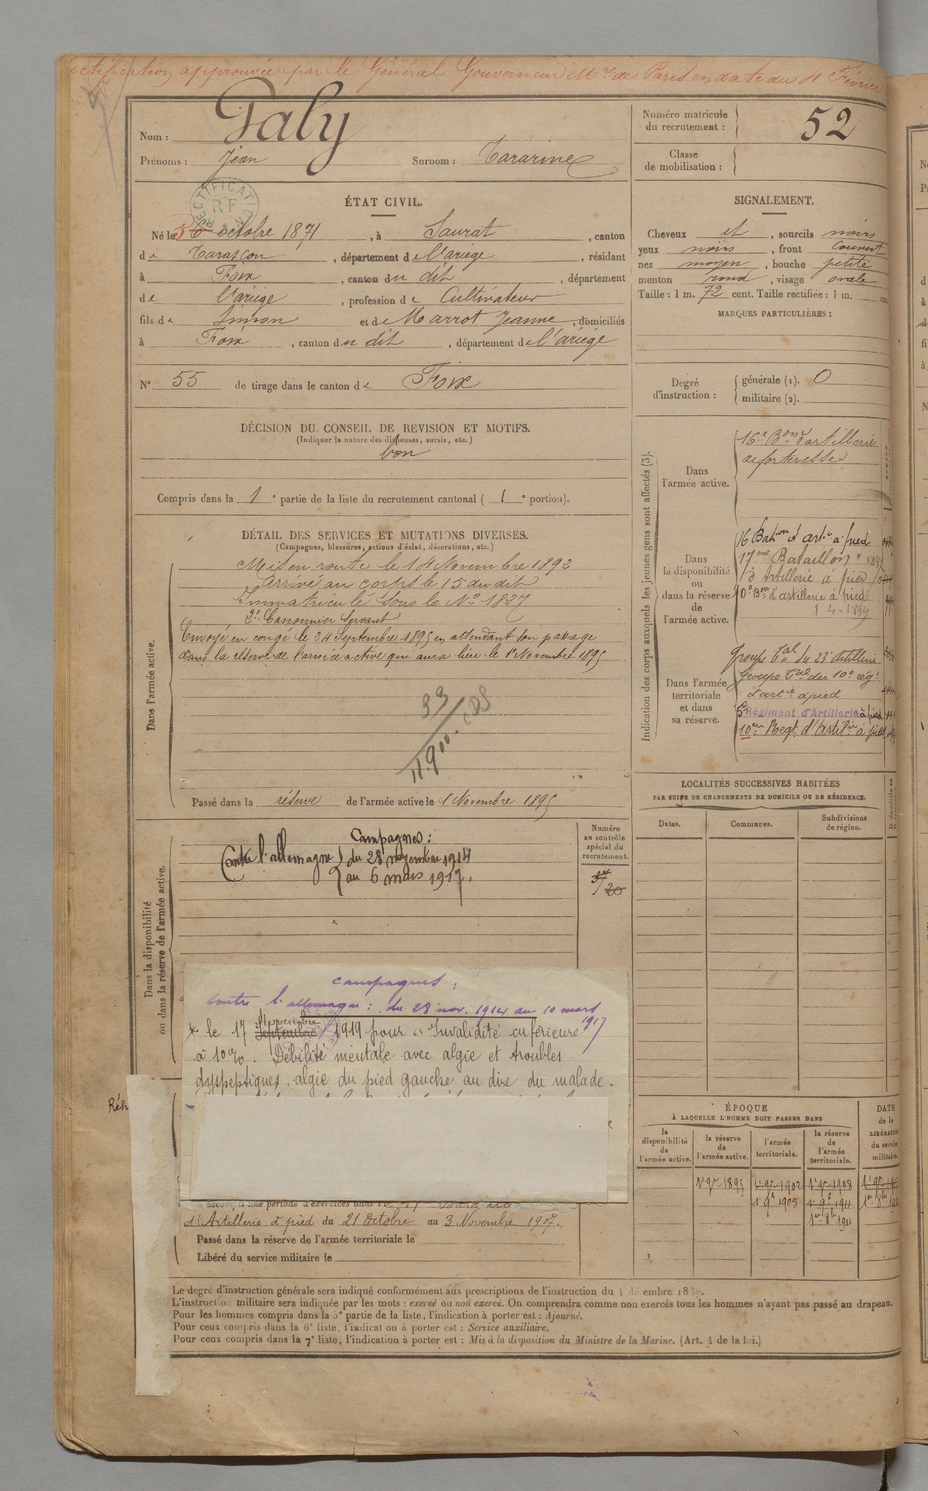 rectification approuvée par le Général Gouverneur Mre de Paris en date du 4 Février
Nom : Galy
Prénoms : Jean Surnom :
Numéro matricule du recrutement : 52
Classe de mobilisation :
ÉTAT CIVIL.
RECTIFICATION
RF
Né le 5 octobre 1871, à Saurat, canton
de Tarascon, département de l'ariège, résidant
à Foix, canton du dit, département
de l'ariège, profession de Cultivateur
fils de Simon et de Marrot Jeanne, domiciliés
à Foix, canton du dit, département de l'ariège
N° 55 de tirage dans le canton de Foix
SIGNALEMENT.
Cheveux et, sourcils noirs
yeux noirs, front couvert
nez moyen, bouche petite
menton rond, visage ovale
Taille : 1 m. 72 cent. Taille rectifiée : 1 m.
MARQUES PARTICULIÈRES :
Degré d'instruction : générale (1). 0
militaire (2).
DÉCISION DU CONSEIL DE REVISION ET MOTIFS.
(Indiquer la nature des dispenses, sursis, etc.)
bon
Compris dans la 1e partie de la liste du recrutement cantonal ( 1e portion).
DÉTAIL DES SERVICES ET MUTATIONS DIVERSES.
(Campagnes, blessures, actions d'éclat, décorations, etc.)
Dans l'armée active.
Mis en route le 14 Novembre 1892
arrivé au corps le 15 du dit
Immatriculé sous le No 1827
2e Canonnier Servant
Envoyé en congé le 24 Septembre 1895 en attendant son passage
dans la réserve de l'armée active qui aura lieu le 1r Novembre 1895
Passé dans la réserve de l'armée active le 1 Novembre 1895
Indication des corps auxquels les jeunes gens sont affectés (3).
Dans l'armée active.
16e Bon d'artillerie
de forteresse
Dans la disponibilité ou dans la réserve de l'armée active.
16 Bation d'artie à pied
17me Bataillon
d'Artillerie à pied
10e Bon d'artillerie à pied
Dans l'armée territoriale et dans sa réserve.
Groupe Tal du 23 Artillerie
Groupe Tal des 10e rég.
d'artie à pied
5e Régiment d'Artillerie à pied
10me Regt d'artilie à pied
LOCALITÉS SUCCESSIVES HABITÉES
PAR SUITE DE CHANGEMENTS DE DOMICILE OU DE RÉSIDENCE.
Dates. Communes. Subdivisions de région.
Dans la disponibilité ou dans la réserve de l'armée active.
Campagnes :
Contre l'allemagne du 28 novembre 1914
au 6 mars 1917.
Numéro au contrôle spécial du recrutement.
campagnes :
contre l'allemagne : du 28 nov. 1914 au 10 mars 1917
le 17 Septembre Novembre 1919 pour « Invalidité inférieure
à 10%. Débilité mentale avec algie et troubles
dyspeptiques, algie du pied gauche au dire du malade.
Réf
d'Artillerie à pied du 21 Octobre au 3 Novembre 1907.
Passé dans la réserve de l'armée territoriale le
Libéré du service militaire le
ÉPOQUE
À LAQUELLE L'HOMME DOIT PASSER DANS
DATE de la LIBÉRATION du service militaire
la disponibilité de l'armée active. la réserve de l'armée active. l'armée territoriale. la réserve de l'armée territoriale.
1r 9bre 1895
Le degré d'instruction générale sera indiqué conformément aux prescriptions de l'instruction du
L'instruction militaire sera indiquée par les mots : exercé ou non exercé. On comprendra comme non exercés tous les hommes n'ayant pas passé au drapeau.
Pour les hommes compris dans la 5e partie de la liste, l'indication à porter est : Ajourné.
Pour ceux compris dans la 6e liste, l'indication à porter est : Service auxiliaire.
Pour ceux compris dans la 7e liste, l'indication à porter est : Mis à la disposition du Ministre de la Marine. (Art. 4 de la loi.)